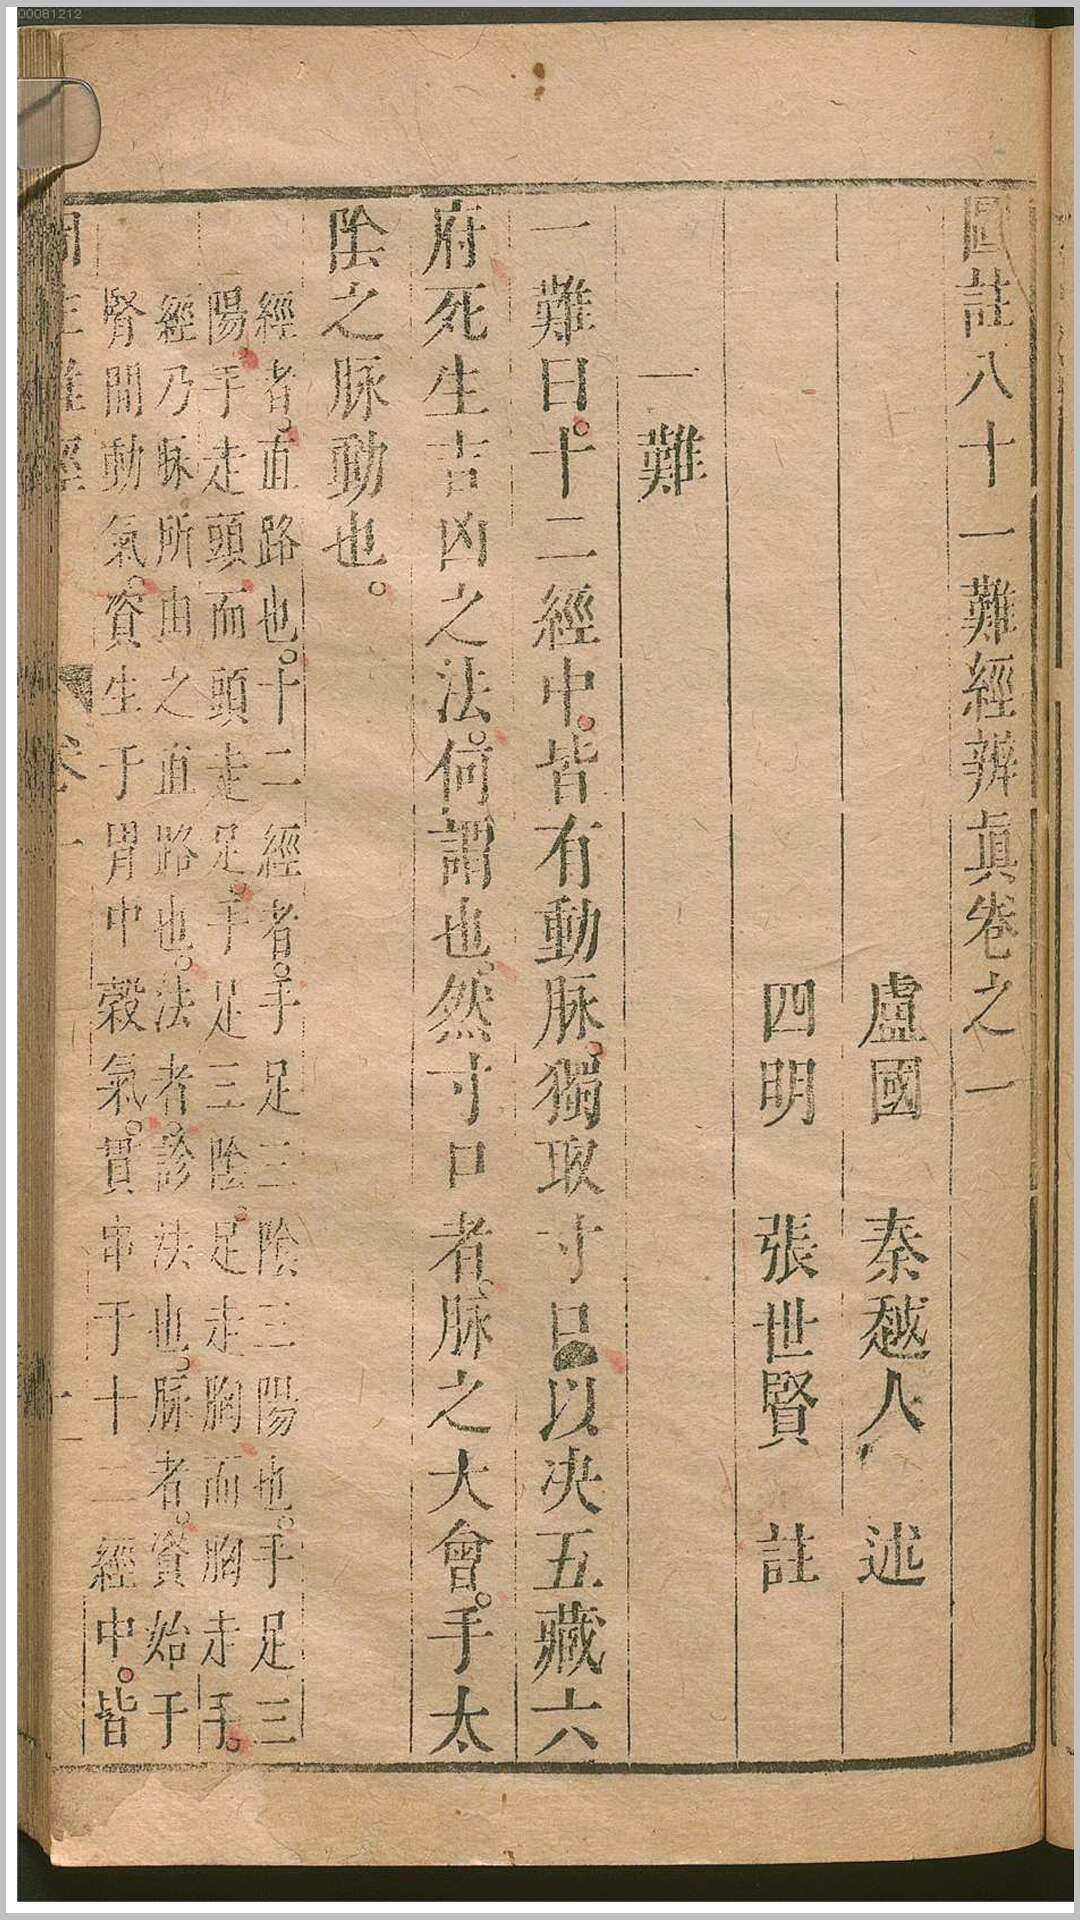 圖註八十一難經辨真卷之一
盧國 秦越人 述
四明 張世賢 註
一難
一難曰十二經中皆有動脉獨取寸口以决五藏六
府死生吉凶之法何謂也然寸口者脉之大會手太
陰之脉動也。
經者直路也十二經者手足三陰三陽也手足三
陽手走頭而頭走足手足三陰足走胸而胸走手
經乃脉所由之直路也法者診法也脉者資始于
腎間動氣資生于胃中穀氣貫串于十二經中皆
00081212